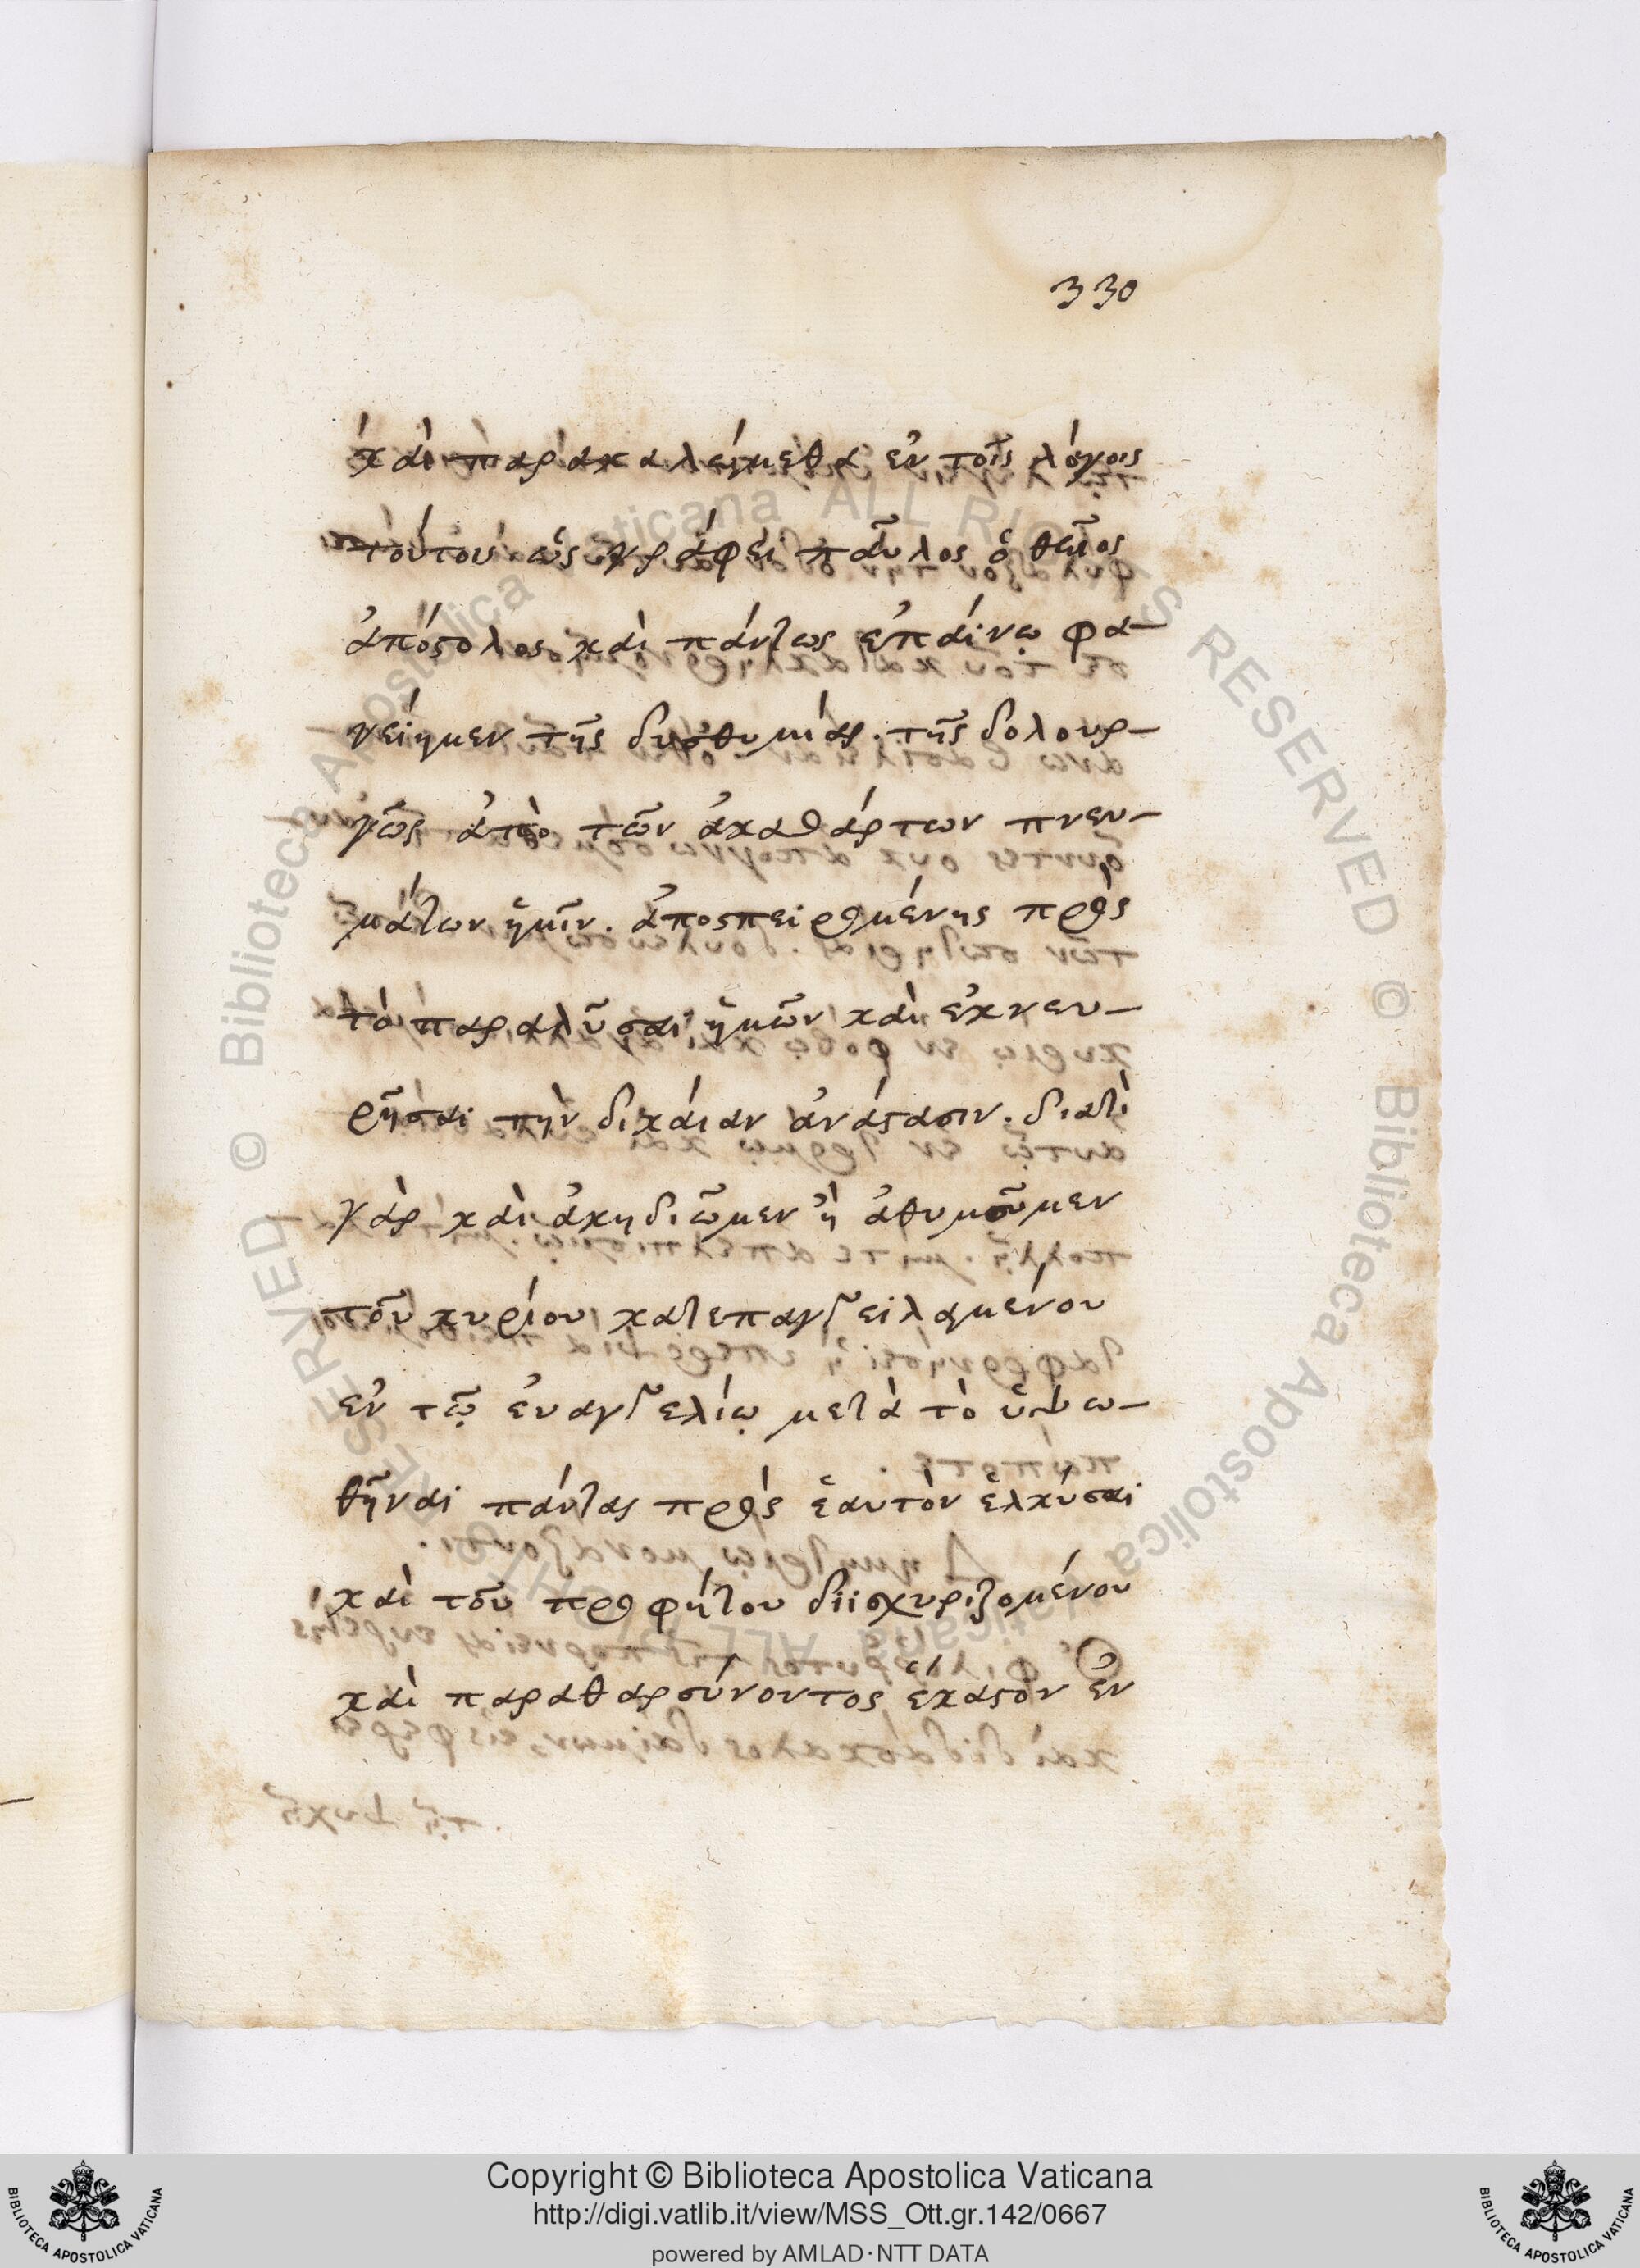 330
καὶ παρακαλείμεθα ἐν τοῖς λόγοις
τούτοις ὡς γράφει παῦλος ὁ θεῖος
ἀπόστολος καὶ πάντως ἐπάνω φα-
νείημεν τῆς δυσθυμίας. τῆς δολουρ-
γῶς ἀπὸ τῶν ἀκαθάρτων πνευ-
μάτων ἡμῖν. ἀποσπειρομένης πρὸς
τὸ παραλῦσαι ἡμῶν καὶ ἐκνευ-
ρῆσαι τὴν δικαίαν ἀνάστασιν. διατὶ
γὰρ καὶ ἀκηδιῶμεν ἢ ἀθυμοῦμεν
τοῦ κυρίου κατεπαγγειλαμένου
ἐν τῷ ἐυαγγελίῳ μετὰ τὸ ὑψω-
θῆναι πάντας πρὸς ἑαυτὸν ἑλκύσαι
καὶ τοῦ προφήτου διϊσχυριζομένου
καὶ παραθαρσύνοντος ἕκαστον ἐν
Copyright © Biblioteca Apostolica Vaticana
http://digi.vatlib.it/view/MSS_Ott.gr.142/0667
powered by AMLAD·NTT DATA
BIBLIOTECA APOSTOLICA VATICANA
BIBLIOTECA APOSTOLICA VATICANA